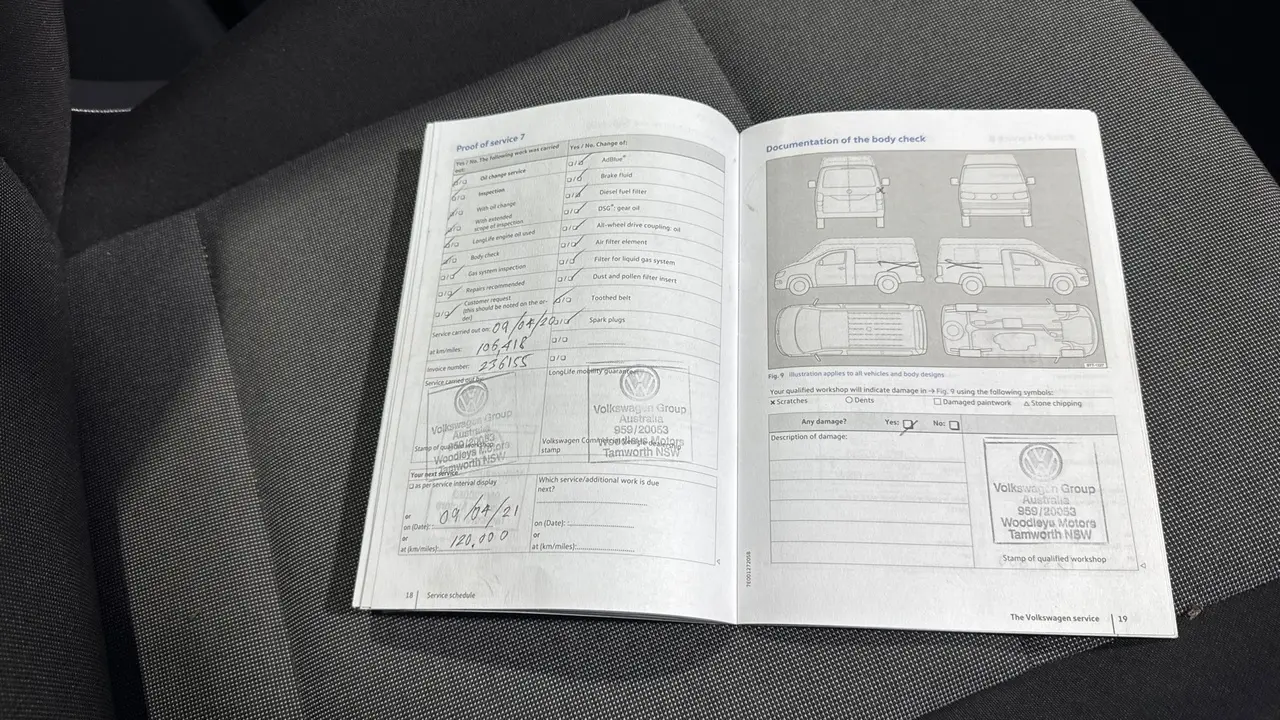 Proof of service 7
Yes / No. The following work was carried out:
Yes / No. Change of:
Oil change service
Inspection
With oil change
With extended scope of inspection
LongLife engine oil used
Body check
Gas system inspection
Repairs recommended
Customer request
(this should be noted on the or-
der)
AdBlue®
Brake fluid
Diesel fuel filter
DSG®: gear oil
All-wheel drive coupling: oil
Air filter element
Filter for liquid gas system
Dust and pollen filter insert
Toothed belt
Spark plugs
Service carried out on: 09/04/20
at km/miles: 106,418
Invoice number: 236155
Service carried out by:
Volkswagen Group
Australia
959/20053
Woodleys Motors
Tamworth NSW
Stamp of qualified workshop
LongLife mobility guarantee
Volkswagen Group
Australia
959/20053
Woodleys Motors
Tamworth NSW
Volkswagen Commercial
stamp
Your next service
as per service interval display
or
on (Date): 09/04/21
or
at (km/miles): 120,000
Which service/additional work is due
next?
on (Date):
or
at (km/miles):
18 | Service schedule
Documentation of the body check
Fig. 9 Illustration applies to all vehicles and body designs
Your qualified workshop will indicate damage in → Fig. 9 using the following symbols:
× Scratches ○ Dents □ Damaged paintwork △ Stone chipping
Any damage? Yes: No:
Description of damage:
Volkswagen Group
Australia
959/20053
Woodleys Motors
Tamworth NSW
Stamp of qualified workshop
7E0012720SB
The Volkswagen service | 19